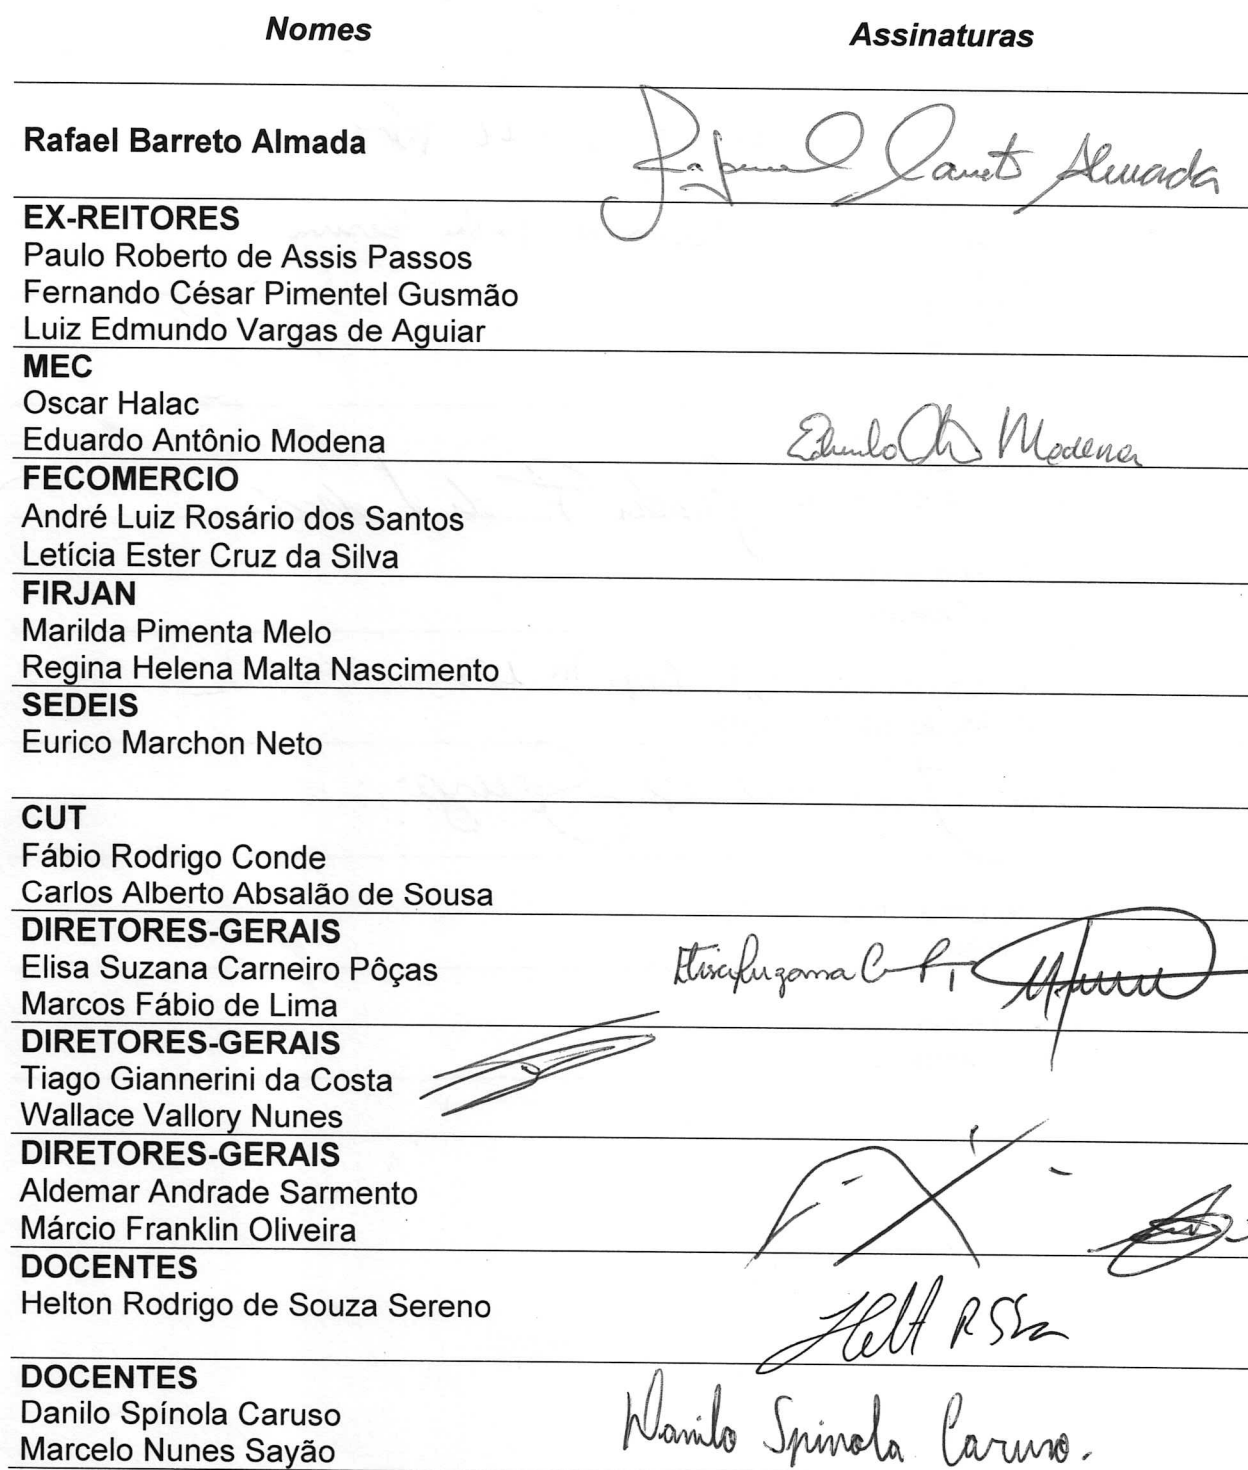 Nomes Assinaturas
Rafael Barreto Almada Rafael Barreto Almada
EX-REITORES
Paulo Roberto de Assis Passos
Fernando César Pimentel Gusmão
Luiz Edmundo Vargas de Aguiar
MEC
Oscar Halac
Eduardo Antônio Modena Eduardo Modena
FECOMERCIO
André Luiz Rosário dos Santos
Letícia Ester Cruz da Silva
FIRJAN
Marilda Pimenta Melo
Regina Helena Malta Nascimento
SEDEIS
Eurico Marchon Neto
CUT
Fábio Rodrigo Conde
Carlos Alberto Absalão de Sousa
DIRETORES-GERAIS
Elisa Suzana Carneiro Pôças Elisa Suzana C P
Marcos Fábio de Lima
DIRETORES-GERAIS
Tiago Giannerini da Costa
Wallace Vallory Nunes
DIRETORES-GERAIS
Aldemar Andrade Sarmento
Márcio Franklin Oliveira
DOCENTES
Helton Rodrigo de Souza Sereno Helt R
DOCENTES
Danilo Spínola Caruso Danilo Spinola Caruso.
Marcelo Nunes Sayão